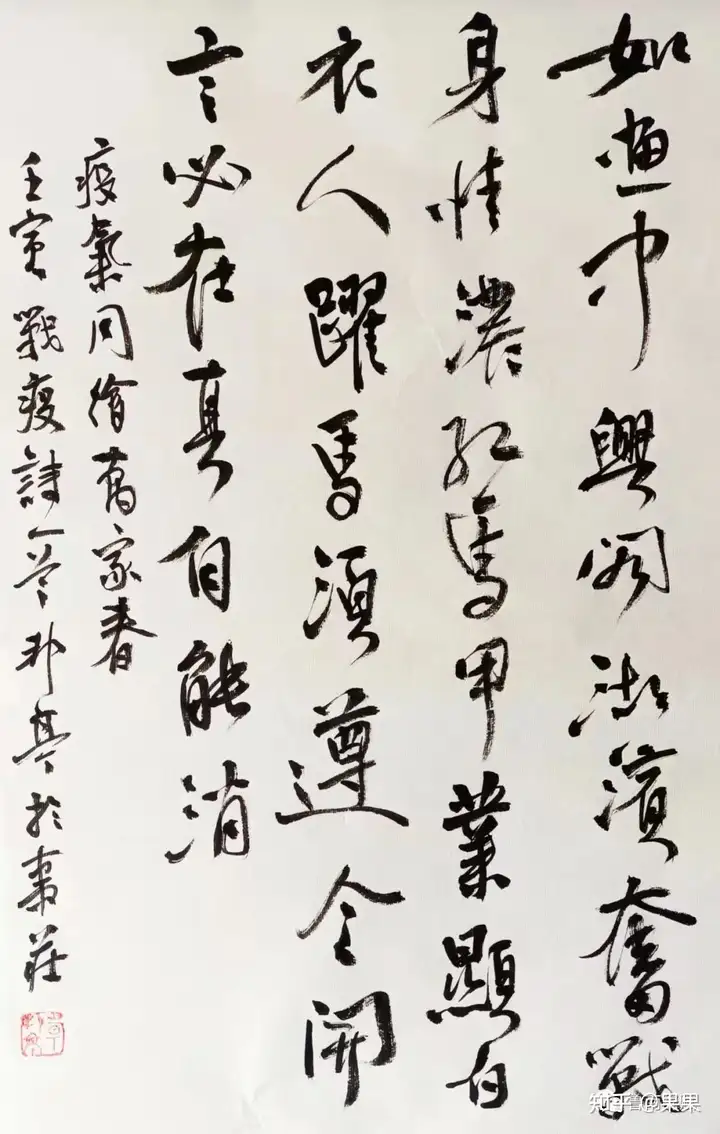 如畫中興閣湖濱奮戰
身情濃紅馬甲業顯白
衣人躍馬須遵令開
言必在真自能消
疫氣同繪萬家春
壬寅戰疫詩一首於棗莊
知乎 @果果